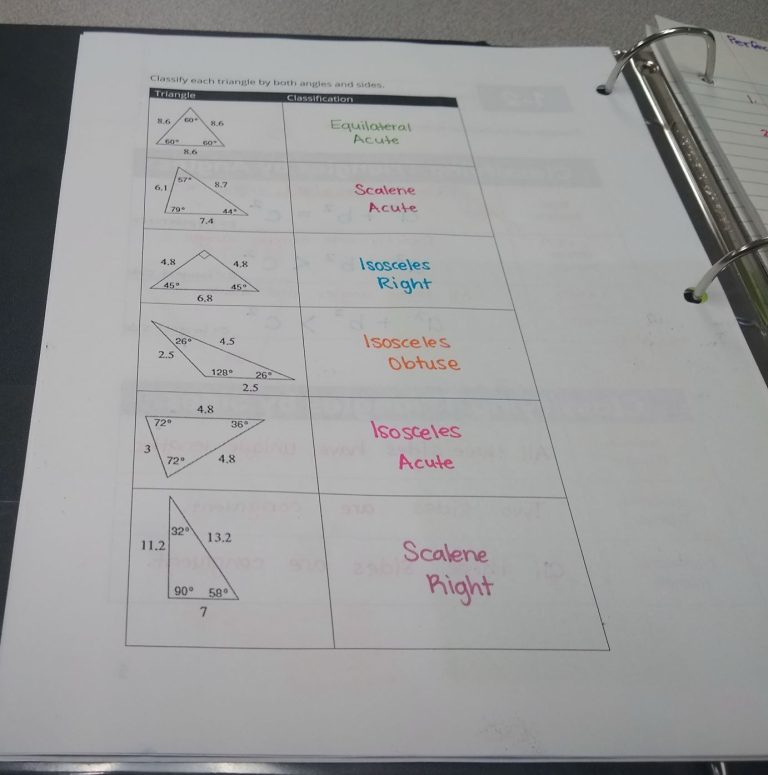 Classify each triangle by both angles and sides.
Triangle Classification
8.6 60° 8.6
60° 60°
8.6
Equilateral
Acute
57°
6.1 8.7
79° 44°
7.4
Scalene
Acute
4.8 4.8
45° 45°
6.8
Isosceles
Right
26° 4.5
2.5
128° 26°
2.5
Isosceles
Obtuse
4.8
72° 36°
3 72° 4.8
Isosceles
Acute
32°
11.2 13.2
90° 58°
7
Scalene
Right
1.